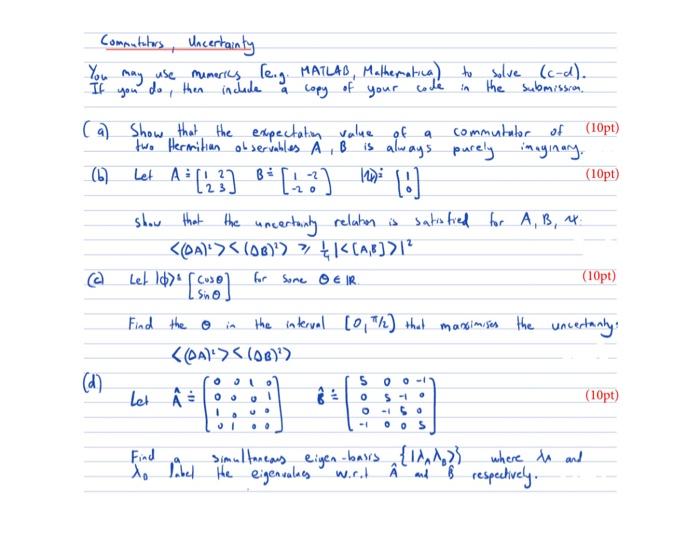 Commutators, Uncertainty
You may use numerics (e.g. MATLAB, Mathematica) to solve (c-d).
If you do, then include a copy of your code in the submission.
(a) Show that the expectation value of a commutator of (10pt)
two Hermitian observables A, B is always purely imaginary.
(b) Let A ≐ [1 2; 2 3] B ≐ [1 -2; -2 0] |ψ⟩ ≐ [1; 0] (10pt)
show that the uncertainty relation is satisfied for A, B, ψ:
<(ΔA)²><(ΔB)²> ≥ 1/4 |<[A,B]>|²
(c) Let |ϕ⟩ ≐ [cosθ; sinθ] for some θ ∈ ℝ (10pt)
Find the θ in the interval [0, π/2] that maximises the uncertainty:
<(ΔA)²><(ΔB)²>
(d) Let Â ≐ [0 0 1 0; 0 0 0 1; 1 0 0 0; 0 1 0 0] B̂ ≐ [5 0 0 -1; 0 5 -1 0; 0 -1 5 0; -1 0 0 5] (10pt)
Find a simultaneous eigen-basis {|λ_A λ_B⟩} where λ_A and
λ_B label the eigenvalues w.r.t Â and B̂ respectively.